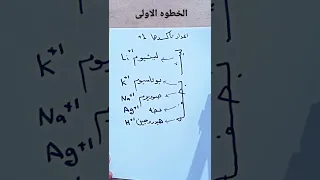 الخطوه الاولى
اعداد تأكسدها +1
ليثيوم Li+1
بوتاسيوم K+1
صوديوم Na+1
فضه Ag+1
هيدروجين H+1
K+1
Na+1
Ag+1